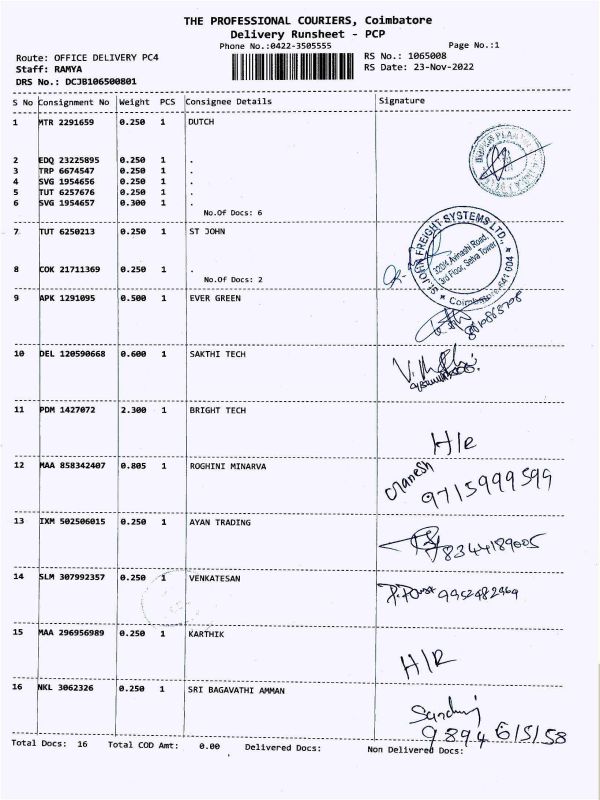 THE PROFESSIONAL COURIERS, Coimbatore
Delivery Runsheet - PCP
Phone No.:0422-3505555 Page No.:1
Route: OFFICE DELIVERY PC4 RS No.: 1065008
Staff: RAMYA RS Date: 23-Nov-2022
DRS No.: DCJB106500801
S No Consignment No Weight PCS Consignee Details Signature
1 MTR 2291659 0.250 1 DUTCH
2 EDQ 23225895 0.250 1 .
3 TRP 6674547 0.250 1 .
4 SVG 1954656 0.250 1 .
5 TUT 6257676 0.250 1 .
6 SVG 1954657 0.300 1 .
No.Of Docs: 6
7 TUT 6250213 0.250 1 ST JOHN
ST.JOHN FREIGHT SYSTEMS LTD.,
320/4 Avinashi Road,
3rd Floor, Selva Tower
Coimbatore-641 004
8 COK 21711369 0.250 1 .
No.Of Docs: 2
9 APK 1291095 0.500 1 EVER GREEN
10 DEL 120590668 0.600 1 SAKTHI TECH
11 PDM 1427072 2.300 1 BRIGHT TECH
H/R
12 MAA 858342407 0.805 1 ROGHINI MINARVA
Manesh
9715999599
13 IXM 502506015 0.250 1 AYAN TRADING
8344189005
14 SLM 307992357 0.250 1 VENKATESAN
9952482969
15 MAA 296956989 0.250 1 KARTHIK
H/R
16 NKL 3062326 0.250 1 SRI BAGAVATHI AMMAN
9894615158
Total Docs: 16 Total COD Amt: 0.00 Delivered Docs: Non Delivered Docs: